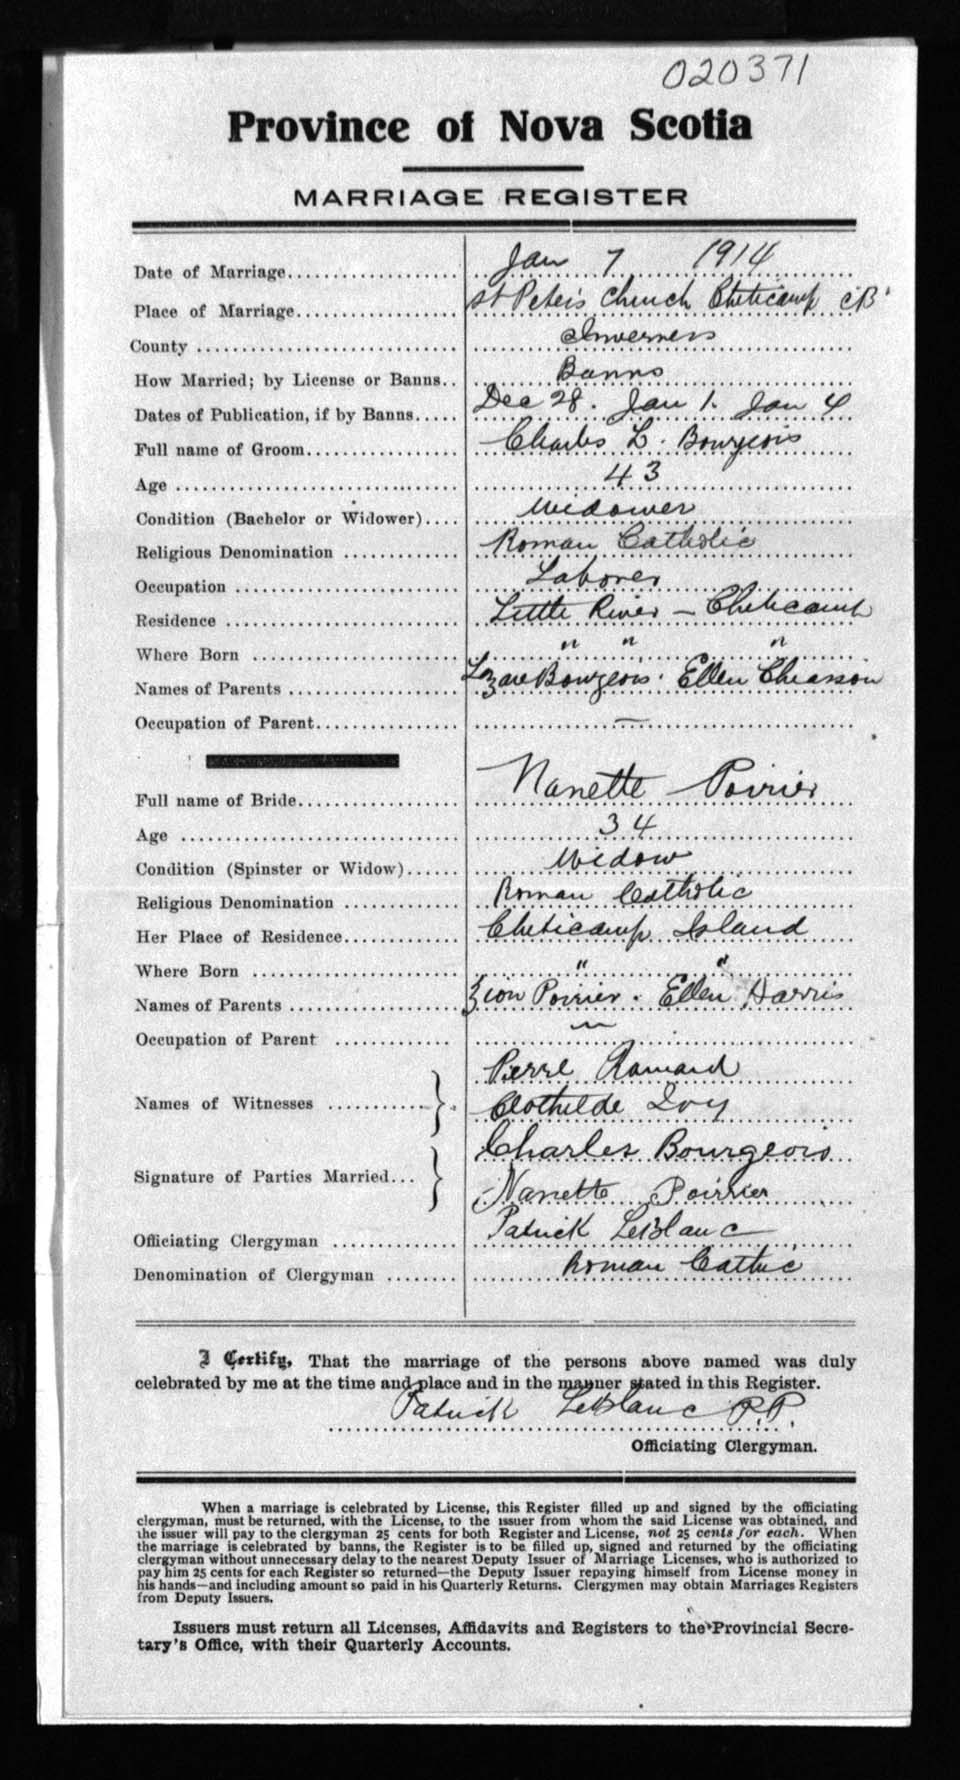 020371
Province of Nova Scotia
MARRIAGE REGISTER
Date of Marriage.................... Jan 7 1914
Place of Marriage................... St Peter's Church Cheticamp C.B.
County .............................. Inverness
How Married; by License or Banns.. Banns
Dates of Publication, if by Banns..... Dec 28. Jan 1. Jan 4
Full name of Groom.................. Charles L. Bourgeois
Age ................................. 43
Condition (Bachelor or Widower).... Widower
Religious Denomination ............. Roman Catholic
Occupation .......................... Laborer
Residence ........................... Little River – Cheticamp
Where Born ........................ " " "
Names of Parents .................... Lazare Bourgeois. Ellen Chiasson
Occupation of Parent................. —
Full name of Bride................... Nanette Poirier
Age ................................. 34
Condition (Spinster or Widow)...... Widow
Religious Denomination ............. Roman Catholic
Her Place of Residence.............. Cheticamp Island
Where Born ........................ " "
Names of Parents .................... Poirier. Ellen Harris
Occupation of Parent ............. —
Names of Witnesses ............ } Pierre
Clothilde
Signature of Parties Married... } Charles Bourgeois
Nanette Poirier
Officiating Clergyman .............. Patrick LeBlanc
Denomination of Clergyman ........ Roman
I Certify, That the marriage of the persons above named was duly
celebrated by me at the time and place and in the manner stated in this Register.
Patrick LeBlanc P.P.
Officiating Clergyman.
When a marriage is celebrated by License, this Register filled up and signed by the officiating
clergyman, must be returned, with the License, to the issuer from whom the said License was obtained, and
the issuer will pay to the clergyman 25 cents for both Register and License, not 25 cents for each. When
the marriage is celebrated by banns, the Register is to be filled up, signed and returned by the officiating
clergyman without unnecessary delay to the nearest Deputy Issuer of Marriage Licenses, who is authorized to
pay him 25 cents for each Register so returned—the Deputy Issuer repaying himself from License money in
his hands—and including amount so paid in his Quarterly Returns. Clergymen may obtain Marriages Registers
from Deputy Issuers.
Issuers must return all Licenses, Affidavits and Registers to the Provincial Secre-
tary's Office, with their Quarterly Accounts.